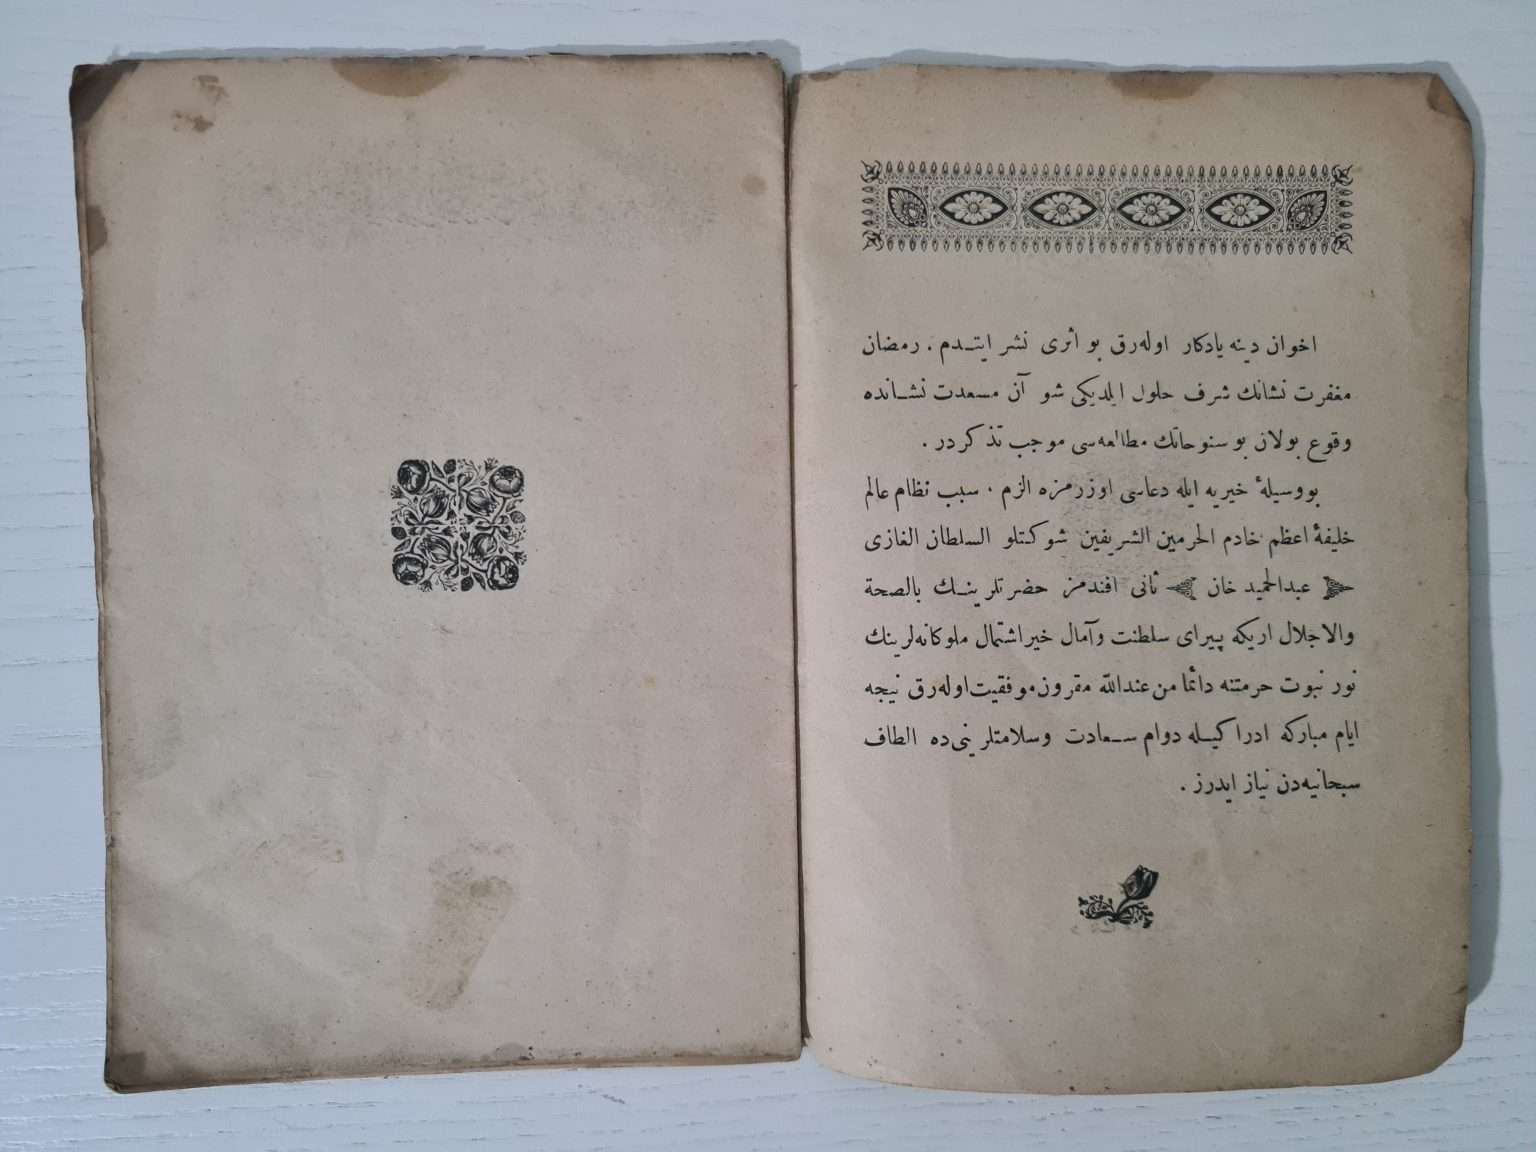 اخوان دینه یادكار اوله‌رق بو أثری نشر ایتـدم . رمضان
مغفرت نشانك شرف حلول ایلدیكی شو آن مسعدت نشـانده
وقوع بولان بو سنوحاتك مطالعه‌سی موجب تذكردر .
بووسیلهٔ خیریه ایله دعاسی اوزرمزه الزم ، سبب نظام عالم
خلیفهٔ اعظم خادم الحرمین الشریفین شوكتلو السلطان الغازی
عبدالحمید خان ثانی افندمز حضرتلرینـك بالصحة
والاجلال اریكه پیرای سلطنت وآمال خیراشتمال ملوكانه‌لرینك
نور نبوت حرمتنه دائما من عندالله مقرون موفقیت اوله‌رق نیجه
ایام مباركه ادراكیـله دوام سـعادت وسلامتلرینی‌ده الطاف
سبحانیه‌دن نیاز ایدرز .